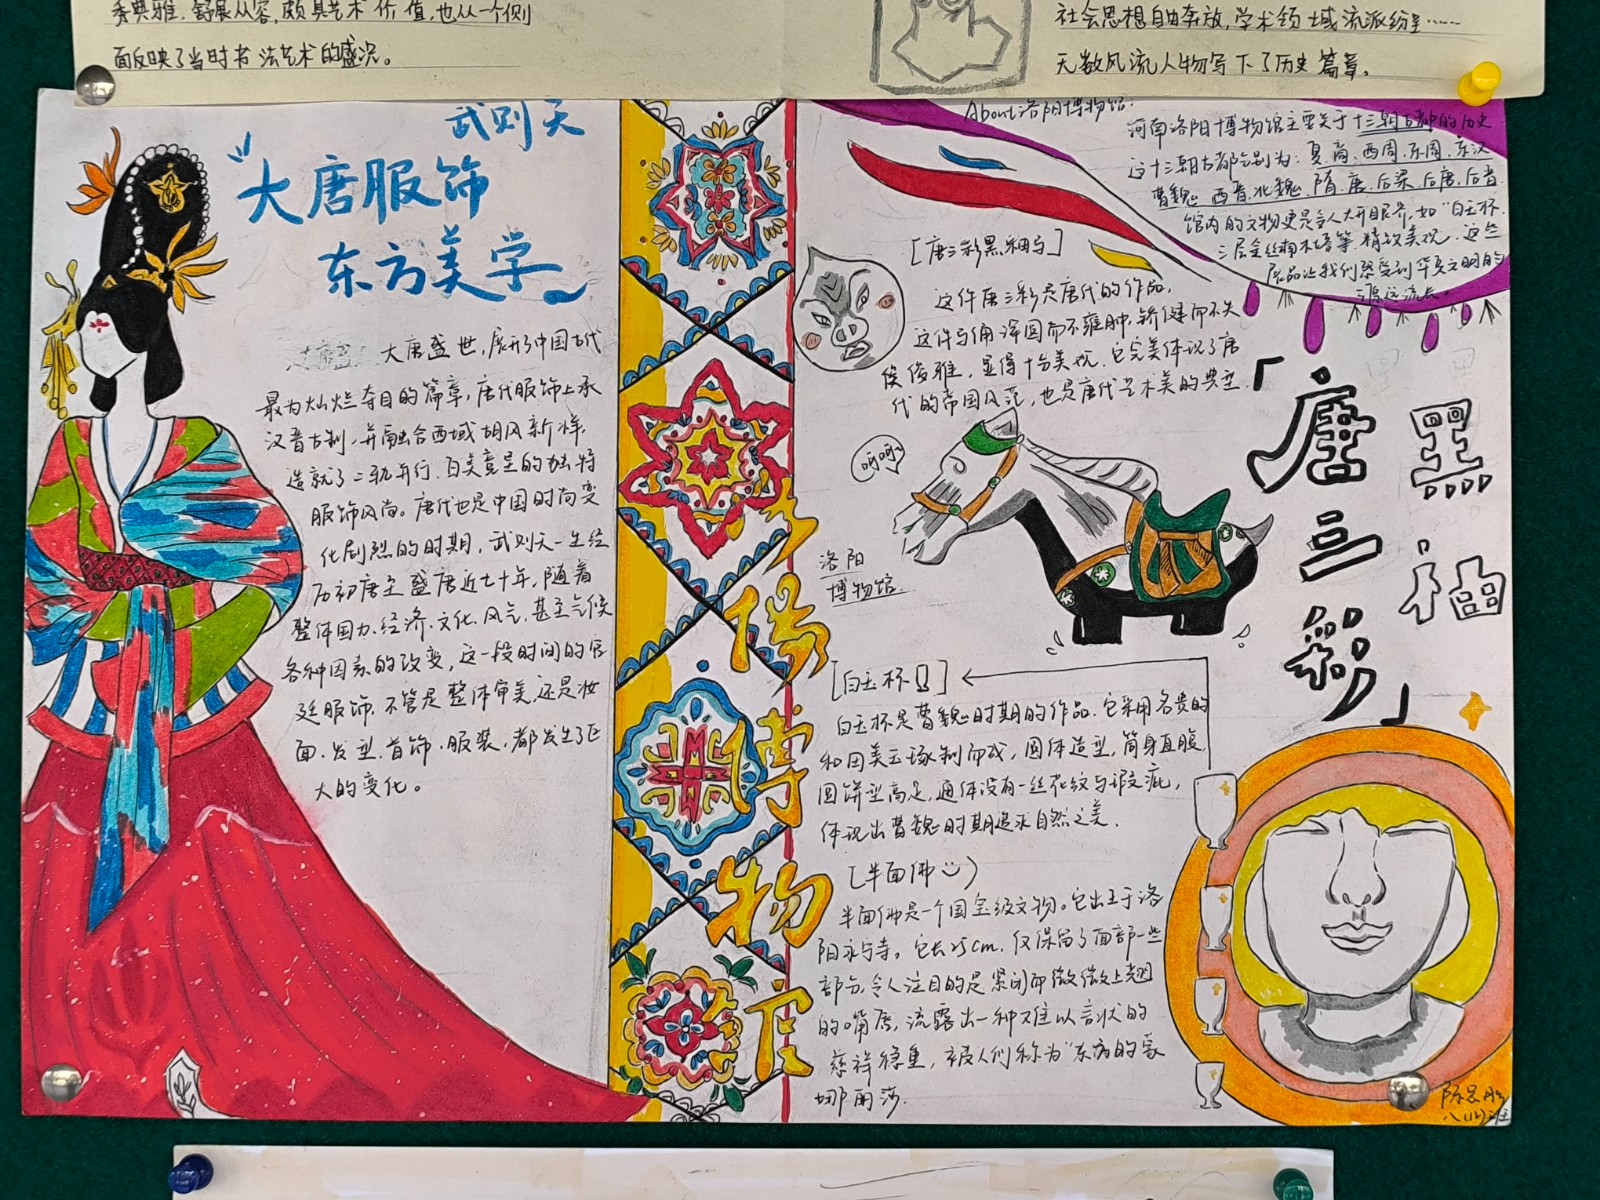 秀典雅,舒展从容,颇具艺术价值,也从一个侧
面反映了当时书法艺术的盛况。
社会思想自由奔放,学术领域流派纷呈……
无数风流人物写下了历史篇章。
武则天
“大唐服饰
东方美学”
大唐盛世,展开了中国古代
最为灿烂夺目的篇章,唐代服饰上承
汉晋古制,并融合西域胡风新样,
造就了二轨并行、百美竞呈的独特
服饰风尚。唐代也是中国时尚变
化剧烈的时期,武则天一生经
历初唐至盛唐近七十年,随着
整体国力、经济、文化、风气,甚至气候
各种因素的改变,这一段时间的宫
廷服饰,不管是整体审美,还是妆
面、发型、首饰、服装,都发生了巨
大的变化。
博
物
官
About洛阳博物馆.
河南洛阳博物馆主要关于十三朝古都的历史
这十三朝古都分别为:夏、商、西周、东周、东汉
曹魏、西晋、北魏、隋、唐、后梁、后唐、后晋.
馆内的文物更是令人大开眼界,如“白玉杯.
精致美观.这些
展品让我们感受到华夏文明的
源远流长.
[唐三彩黑釉马]
这件唐三彩是唐代的作品,
这件马俑浑圆而不雍肿,骄健而不失
俊雅,显得十分美观.它完美体现了唐
代的帝国风范,也是唐代艺术美的典型.
呵呵
洛阳
博物馆.
「唐三彩」
黑釉
[白玉杯]
白玉杯是曹魏时期的作品.它采用名贵的
和田美玉琢制而成,圆体造型,筒身直腹
圆饼型高足,通体没有一丝花纹与瑕疵,
体现出曹魏时期追求自然之美.
[半面佛)
半面佛是一个国宝级文物。它出土于洛
阳永宁寺。它长25cm.仅保留了面部一些
部分,令人注目的是紧闭而微微上翘
的嘴唇,流露出一种难以言状的
慈祥稳重,被人们称为“东方的蒙
娜丽莎.